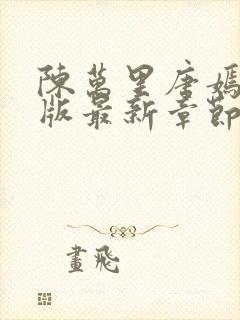 陳萬里唐嫣
版最新章節
畫飛